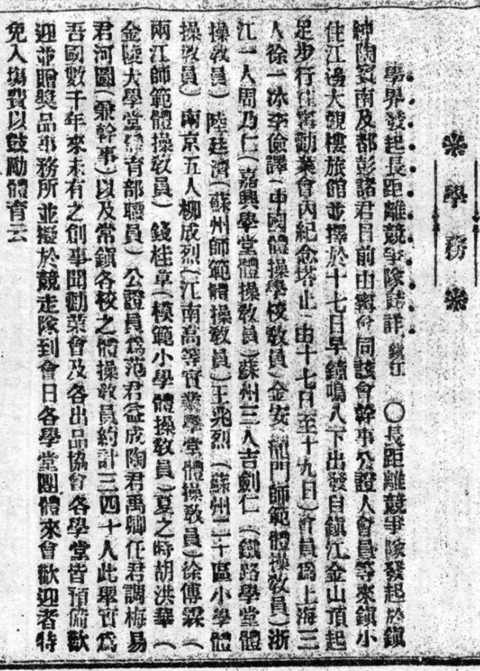 學務
學界發起長距離競爭隊誌詳 鎮江 ○長距離競爭隊發起於鎮
紳陶裘南及都彭諸君日前由寗會同該會幹事公證人會員等來鎮小
住江邊大觀樓旅館並擇於十七日早鐘鳴八下出發自鎮江金山頂起
足步行往寗勸業會內紀念塔止(由十七日至十九日)會員爲上海三
人徐一冰李儉譯(中國體操學校敎員)金安(龍門師範體操敎員)浙
江一人周乃仁(嘉興學堂體操敎員)蘇州三人吉劍仁(鐵路學堂體
操敎員)陸廷濟(蘇州師範體操敎員)王兆烈(蘇州二十區小學體
操敎員)南京五人柳成烈(江南高等實業學堂體操敎員)徐傅霖(
兩江師範體操敎員)錢桂章(模範小學體操敎員)夏之時胡洪華(
金陵大學堂 育部職員)公證員爲范君益成陶君禹卿任君調梅易
君河圖(兼幹事)以及常鎮各校之體操敎員約計三四十人此舉實爲
吾國數千年來未有之創事聞勸業會及各出品協會各學堂皆預備歡
迎並贈獎品事務所並擬於競走隊到會日各學堂團體來會歡迎者特
免入塲費以鼓勵體育云